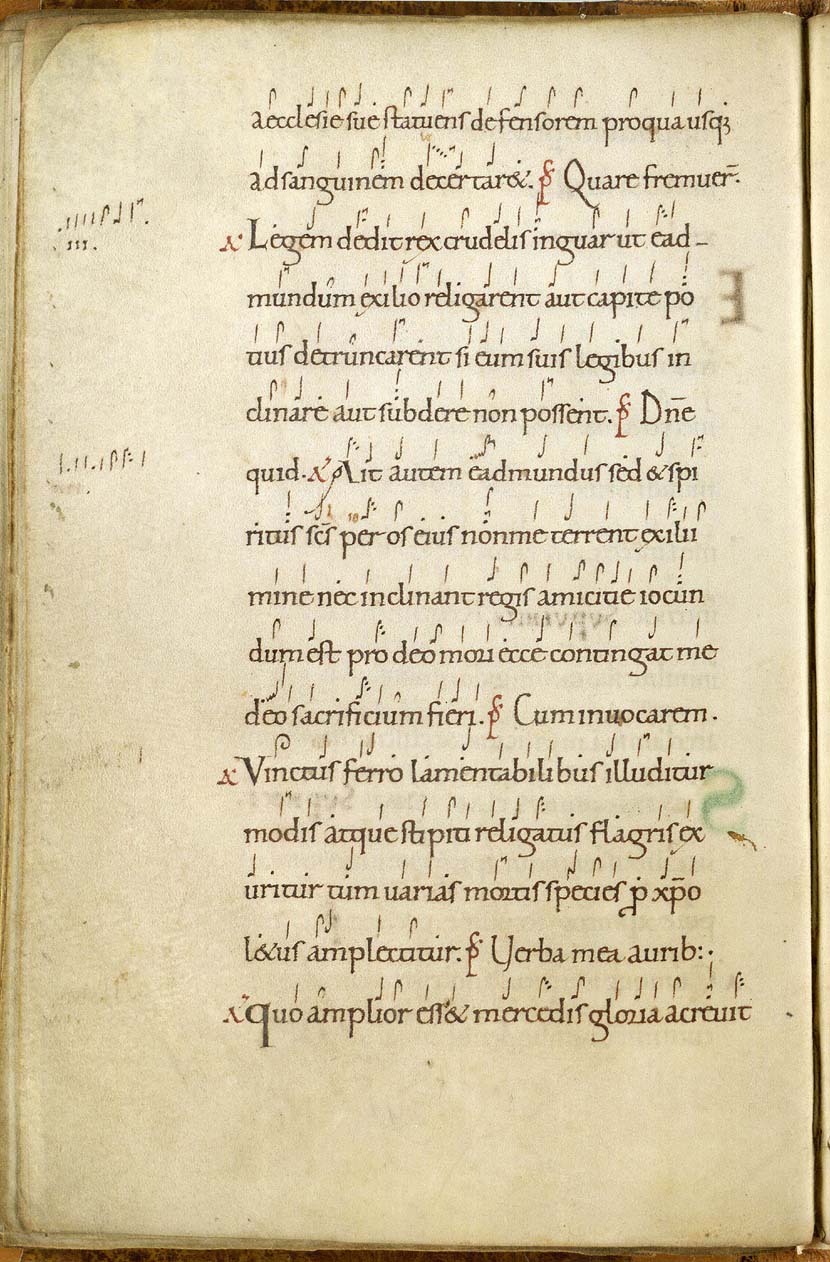 aecclesie sue statuens defensorem pro qua usq;
ad sanguinem decertar&. ps Quare fremuer̄.
A Legem dedit rex crudelis inguar ut ead-
mundum exilio religarent aut capite po
tius detruncarent si eum suis legibus in
clinare aut subdere non possent. ps Dn̄e
quid. A Ait autem eadmundus sed & spi
ritus sc̄s per os eius non me terrent exilii
mine nec inclinant regis amicitie iocun
dum est pro deo mori ecce contingat me
deo sacrificium fieri. ps Cum inuocarem.
A Vinctus ferro lamentabilibus illuditur
modis atque stipiti religatus flagris ex
uritur tum uarias mortis species ꝓ xp̄o
l&us amplectitur. ps Verba mea aurib:.
A Quo amplior ess& mercedis gloria acreuit